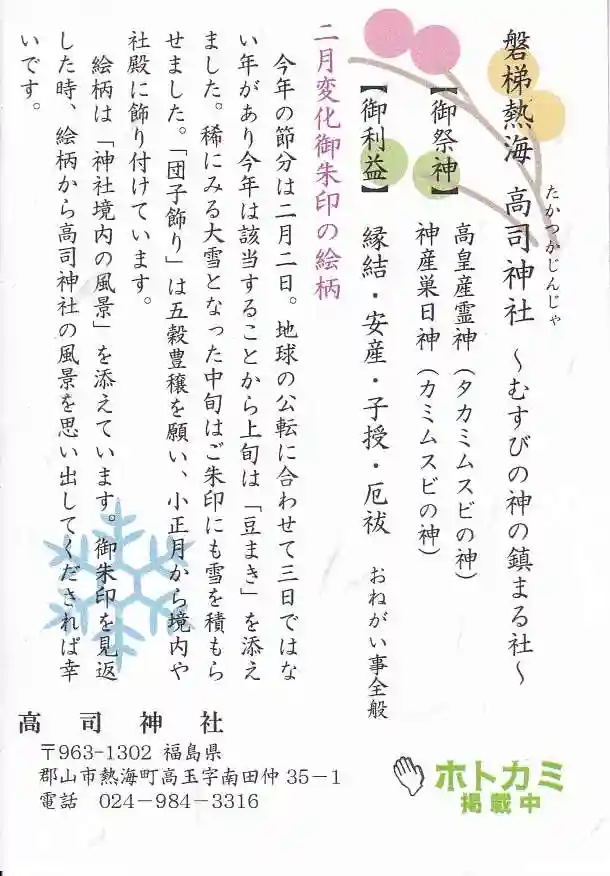 磐梯熱海　高司神社　～むすびの神の鎮まる社～
たかつかじんじゃ
【御祭神】　高皇産霊神（タカミムスビの神）
神産巣日神（カミムスビの神）
【御利益】　縁結・安産・子授・厄祓　おねがい事全般
二月変化御朱印の絵柄
今年の節分は二月二日。地球の公転に合わせて三日ではな
い年があり今年は該当することから上旬は「豆まき」を添え
ました。稀にみる大雪となった中旬はご朱印にも雪を積もら
せました。「団子飾り」は五穀豊穣を願い、小正月から境内や
社殿に飾り付けています。
絵柄は「神社境内の風景」を添えています。御朱印を見返
した時、絵柄から高司神社の風景を思い出してくだされば幸
いです。
高司神社
〒963-1302 福島県
郡山市熱海町高玉字南田仲35－1
電話　024－984－3316
ホトカミ
掲載中